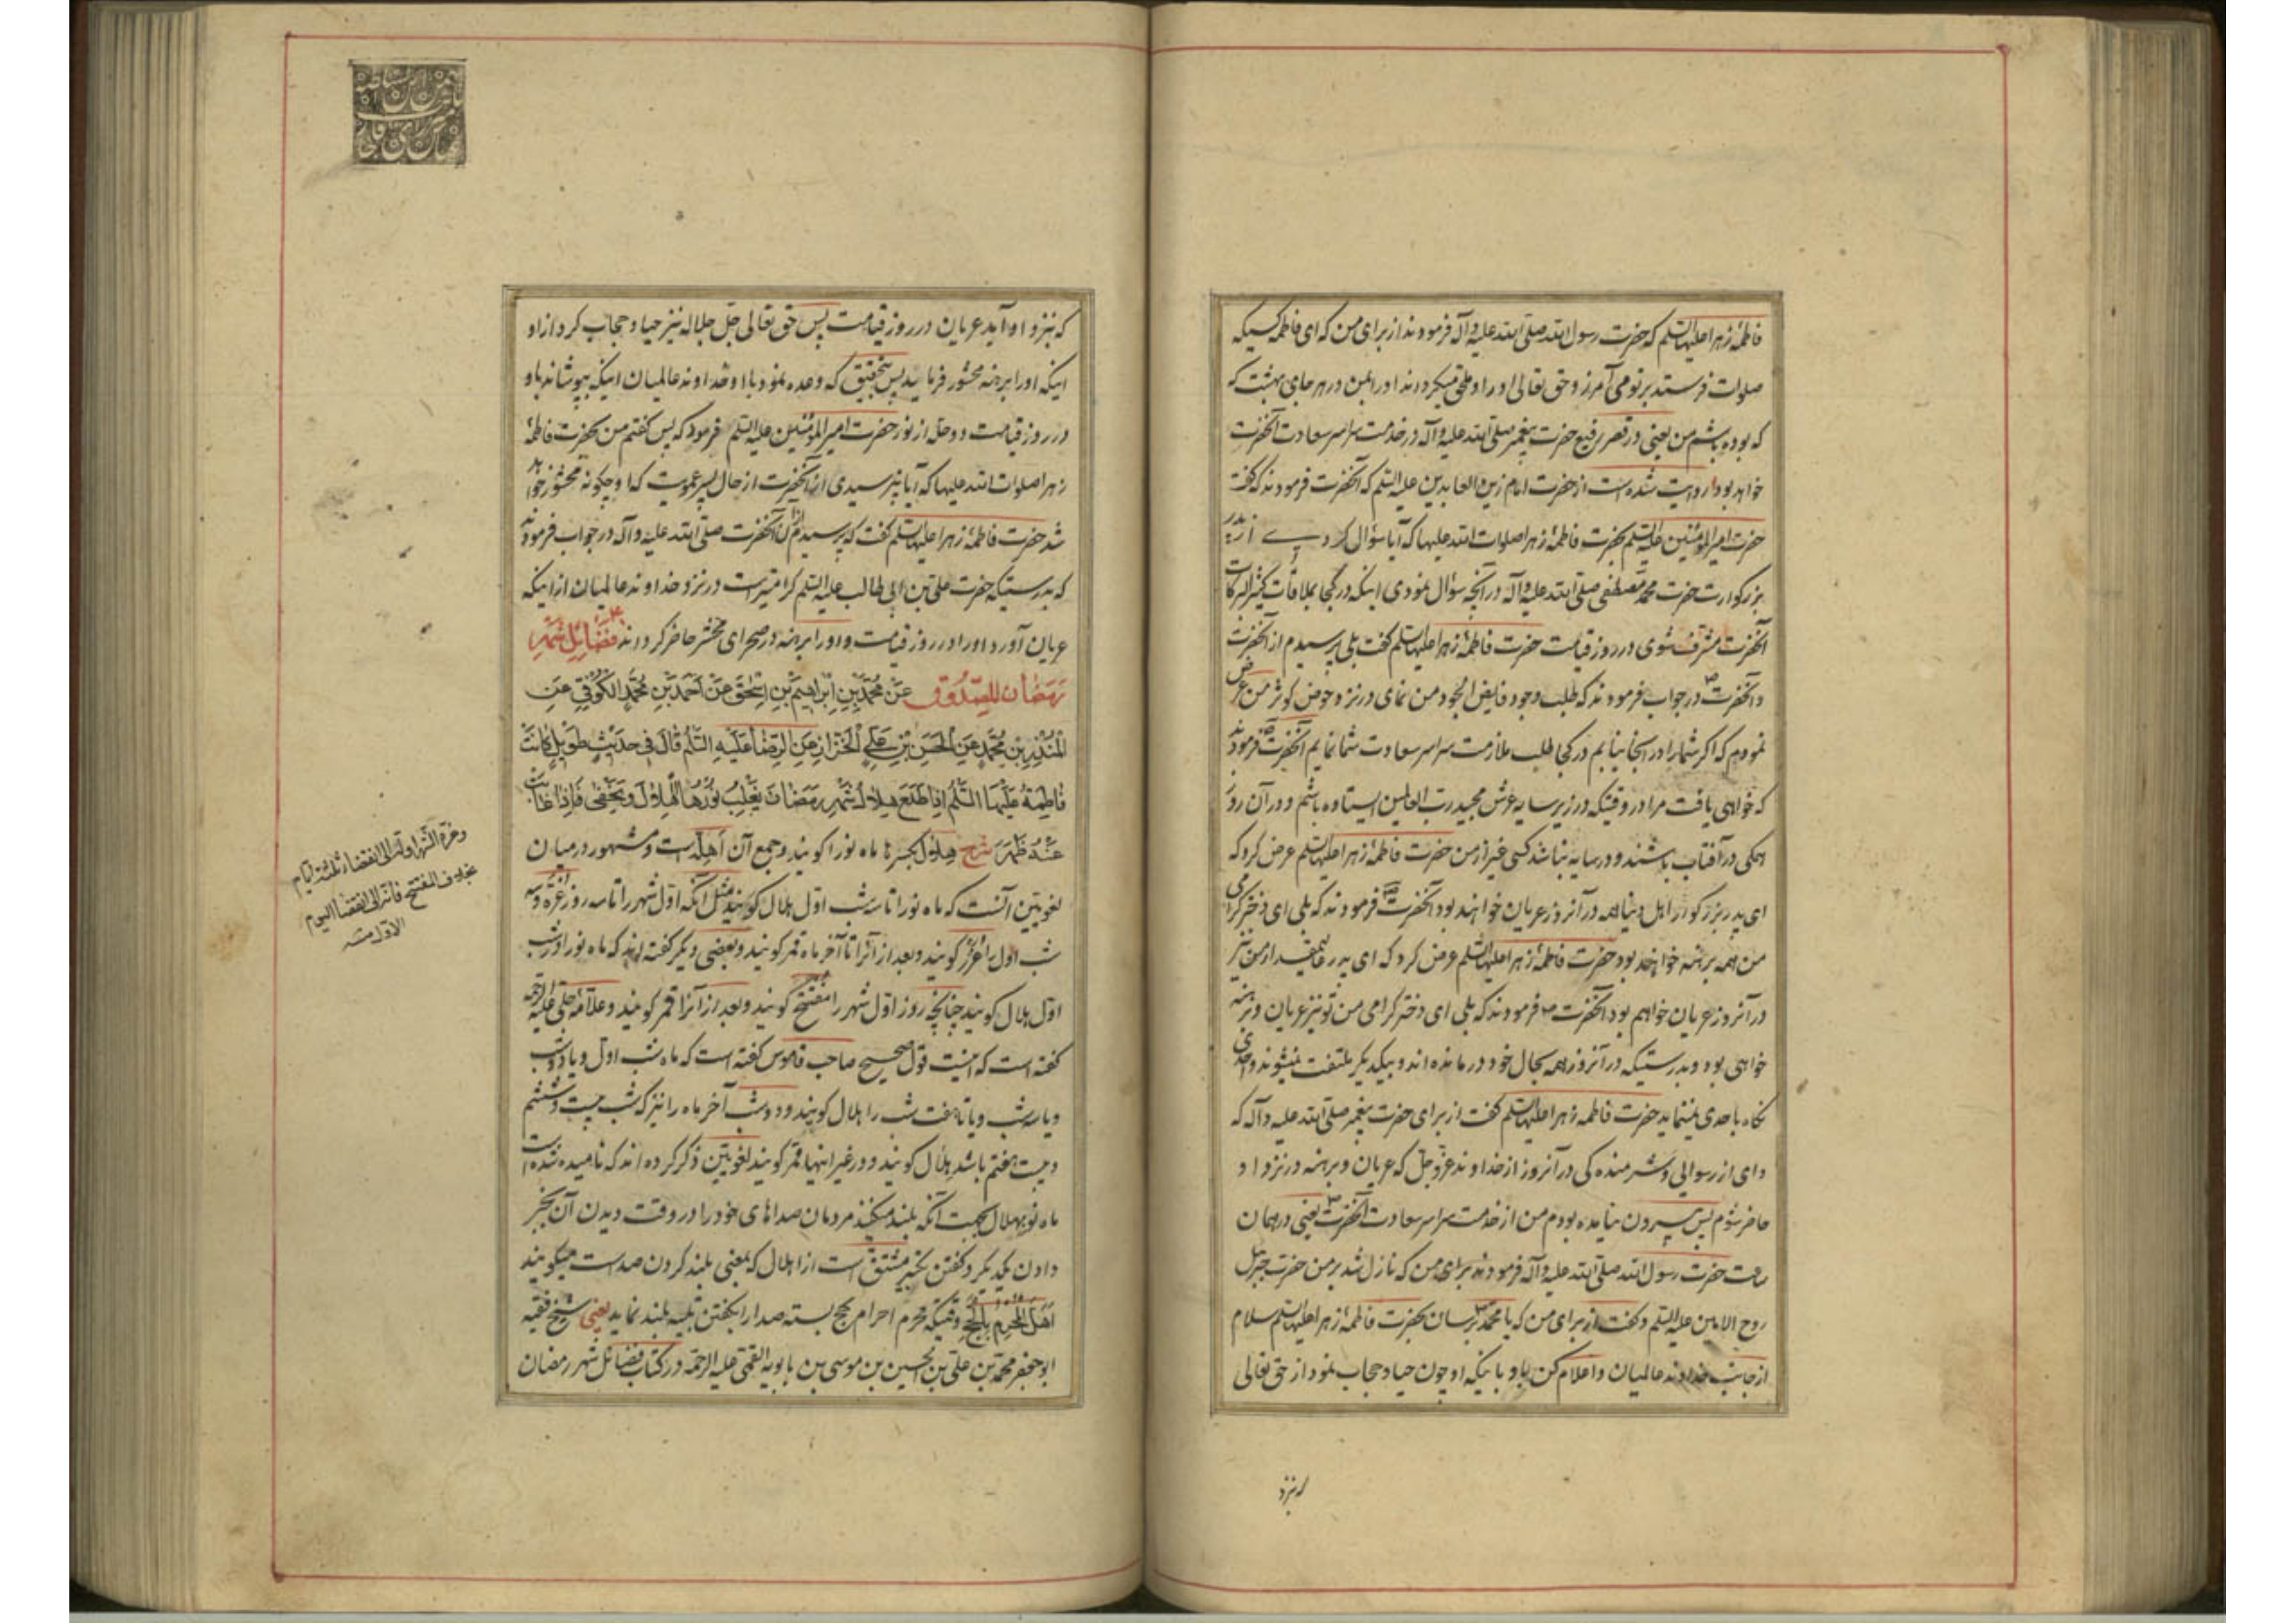 فاطمهٔ زهرا علیهاالسلم که حضرت رسول الله صلی الله علیه وآله فرمودند از برای من که ای فاطمه کسیکه
صلوات فرستد بر تو می آمرزد حق تعالی او را و ملحق میکرداند او را بمن در هر جای بهشت که
که بوده باشم من یعنی در قصر رفیع حضرت پیغمبر صلی الله علیه وآله در خدمت سراسر سعادت آنحضرت
خواهد بود روایت شده است از حضرت امام زین العابدین علیه السلم که آنحضرت فرمودند که گفت
حضرت امیرالمؤمنین علیه السلم بحضرت فاطمهٔ زهرا صلوات الله علیها که آیا سؤال کردی از پدر
بزرکوارت حضرت محمد مصطفی صلی الله علیه وآله در آنچه سؤال نمودی اینکه در کجا بملاقات کثیرالبرکات
آنحضرت مشرف شوی در روز قیامت حضرت فاطمهٔ زهرا علیهاالسلم گفت بلی پرسیدم از آنحضرت
و آنحضرت ص در جواب فرمودند که طلب وجود فایض الجود من نمای در نزد حوض کوثر من عرض
نمودم که اکر شما را در آنجا نیابم در کجا طلب ملازمت سراسر سعادت شما نمایم آنحضرت ص فرمودند
که خواهی یافت مرا در وقتیکه در زیر سایه عرش مجید رب العالمین ایستاده باشم و در آن روز
همکی در آفتاب باشند و در سایه نباشد کسی غیر از من حضرت فاطمهٔ زهرا علیهاالسلم عرض کرد که
ای پدر بزرکوار اهل دنیا همه در آنروز عریان خواهند بود آنحضرت ص فرمودند که بلی ای دختر کرامی
من همه برهنه خواهند بود حضرت فاطمهٔ زهرا علیهاالسلم عرض کرد که ای پدر من نیز
در آنروز عریان خواهم بود آنحضرت ص فرمودند که بلی ای دختر کرامی من تو نیز عریان و برهنه
خواهی بود و بدرستیکه در آنروز همه بحال خود درمانده اند و بیکدیکر ملتفت نمیشوند و احدی
نکاه باحدی نمینماید حضرت فاطمه زهرا علیهاالسلم گفت از برای حضرت پیغمبر صلی الله علیه وآله که
وای از رسوائی و شرمنده کی در آنروز از خداوند عز و جل که عریان و برهنه در نزد او
حاضر شوم پس بیرون نیامده بودم من از خدمت سراسر سعادت آنحضرت ص یعنی در همان
ساعت حضرت رسول الله صلی الله علیه وآله فرمودند برای من که نازل شد بر من حضرت جبرئیل
روح الامین علیه السلم و گفت از برای من که یا محمد برسان بحضرت فاطمهٔ زهرا علیهاالسلم سلام
از جانب خداوند عالمیان و اعلام کن باو باینکه او چون حیا و حجاب نمود از حق تعالی
که نزد
که نزد او آید عریان در روز قیامت پس حق تعالی جل جلاله نیز حیا و حجاب کرد از او
اینکه او را برهنه محشور فرماید پس بتحقیق که وعده نمود با او خداوند عالمیان اینکه بپوشاند باو
در روز قیامت دو حله از نور حضرت امیرالمؤمنین علیه السلم فرمود که پس گفتم من بحضرت فاطمهٔ
زهرا صلوات الله علیها که آیا نپرسیدی از آنحضرت از حال پسر عمویت که او چکونه محشور خواهد
شد حضرت فاطمهٔ زهرا علیهاالسلم گفت که پرسیدم از آنحضرت صلی الله علیه وآله در جواب فرمودند
که بدرستیکه حضرت علی بن ابی طالب علیه السلم کرامیتر است در نزد خداوند عالمیان از اینکه
عریان آورد او را در روز قیامت و او را برهنه در صحرای محشر حاضر کرداند فَضَائِلِ شَهْرِ
رَمَضَان لِلصَّدُوقِ عَنْ مُحَمَّدِ بْنِ اِبْرَاهِيمَ بْنِ اِسْحٰقَ عَنْ اَحْمَدَ بْنِ مُحَمَّدٍ الْكُوفِيِّ عَنِ
الْمُنْذِرِ بْنِ مُحَمَّدٍ عَنِ الْحَسَنِ بْنِ عَلِيٍّ الْخَزَّازِ عَنِ الرِّضَا عَلَيْهِ السَّلٰمُ قَالَ فِي حَدِيثٍ طَوِيلٍ كَانَتْ
فَاطِمَةُ عَلَيْهَا السَّلٰمُ اِذَا طَلَعَ هِلَالُ شَهْرِ رَمَضَانَ يَغْلِبُ نُورُهَا الْهِلَالَ وَيَخْفٰى فَاِذَا غَابَتْ
عَنْهُ ظَهَرَ شرح هلال بکسر ها ماه نو را کویند و جمع آن اَهِلَّه است و مشهور در میان
لغویین آنست که ماه نو را تا سه شب اول هلال کویند مثل آنکه اول شهر را تا سه روز غره و سه
شب اول را غرر کویند و بعد از آنرا تا آخر ماه قمر کویند و بعضی دیکر گفته اند که ماه نو را در شب
اول هلال کویند چنانچه روز اول شهر را مفتتح کویند و بعد از آنرا قمر کویند و علامهٔ حلی علیه الرحمه
گفته است که اینست قول صحیح صاحب قاموس گفته است که ماه شب اول و یا دو شب
و یا سه شب و یا تا هفت شب را هلال کویند و دو شب آخر ماه را نیز که شب بیست و ششم
و بیست هفتم باشد هلال کویند و در غیر اینها قمر کویند لغویین ذکر کرده اند که نامیده شده است
ماه نو بهلال بجهت آنکه بلند میکنند مردمان صداهای خود را در وقت دیدن آن بخبر
دادن یکدیکر و گفتن تکبیر مشتق است از اهلال که بمعنی بلند کردن صداست میکویند
اَهَلَّ الْمُحْرِمُ بِالْحَجِّ وقتیکه محرم احرام بحج بسته صدا را بگفتن تلبیه بلند نماید یعنی شیخ فقیه
ابوجعفر محمد بن علی بن الحسین بن موسی بن بابویه القمی علیه الرحمة در کتاب فضائل شهر رمضان
وغرة الشهر اوله الی انقضاء ثلثة ایام
بخلاف المفتتح فانه الی انقضاء الیوم
الاول منه